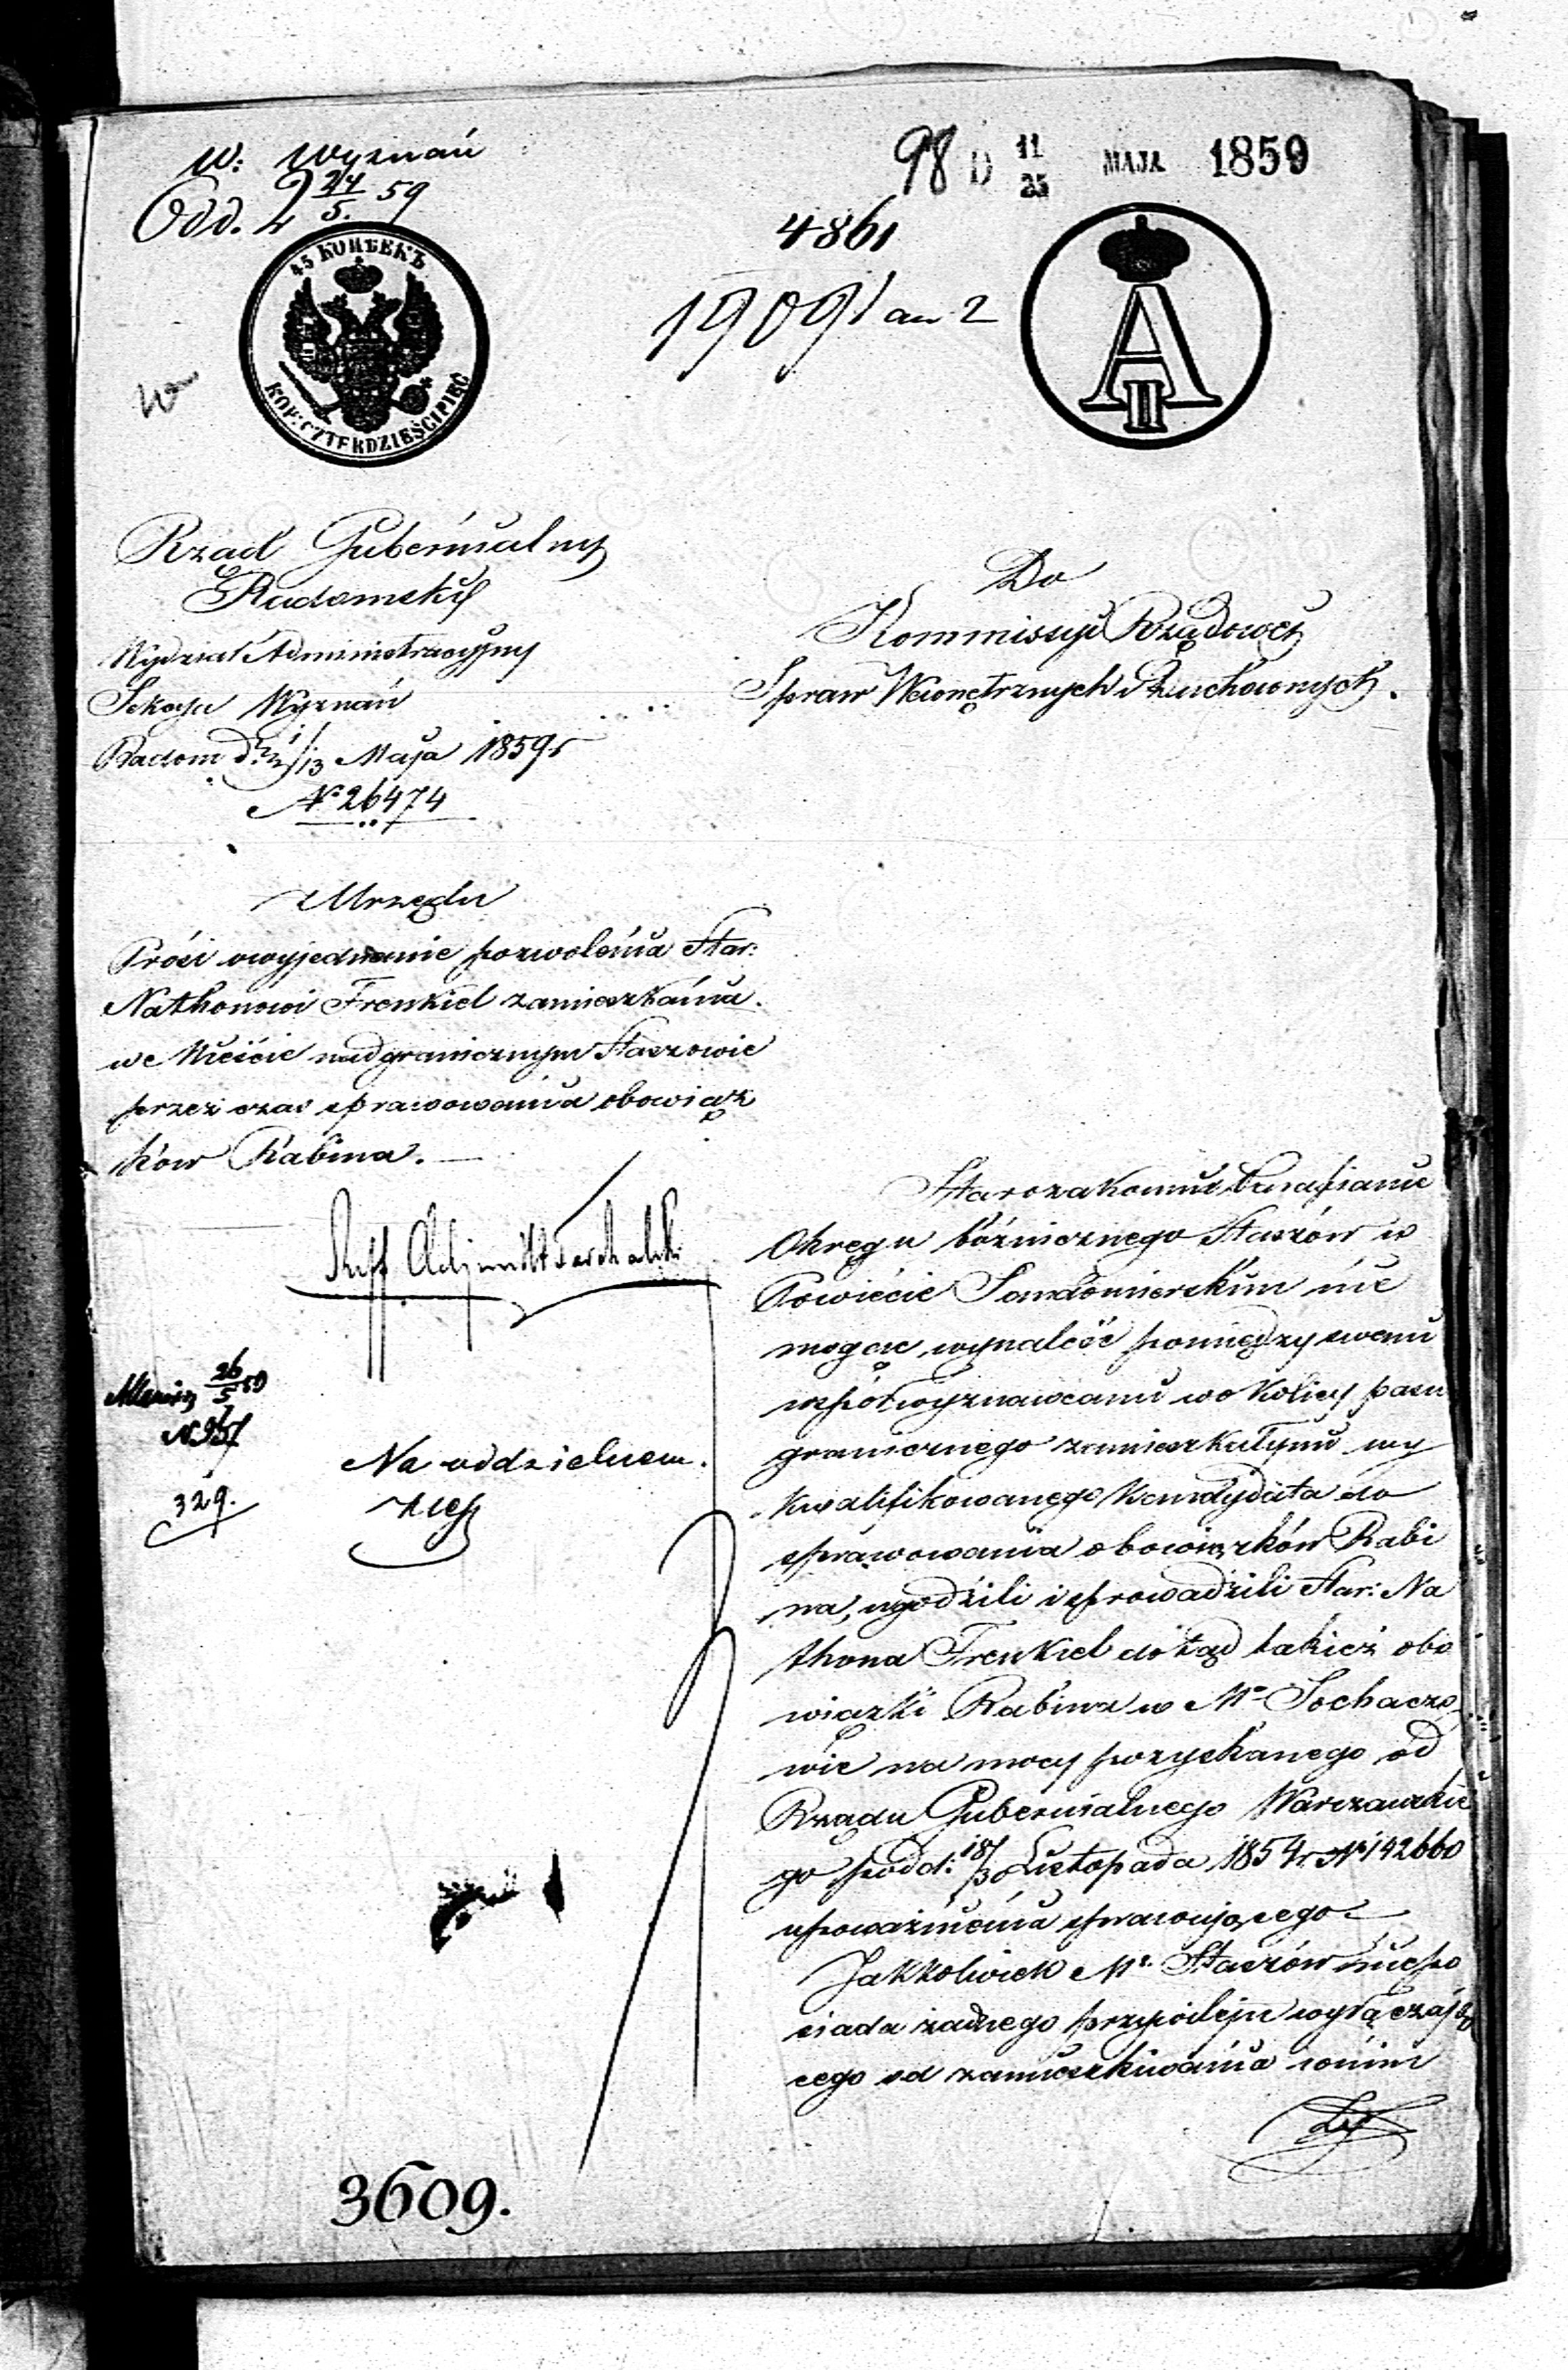 W: Wyznań
Odd. 2 24/5. 59
98 D 11/23 MAJA 1859
4861
19091 an 2
45 КОПѢЕКЪ
KOP: CZTERDZIEŚCI PIĘĆ
A II
Rząd Gubernialny
Radomski
Wydział Administracyjny
Sekcya Wyznań
Radom d. 1/13 Maja 1859 r
N° 26474
Do
Kommissyi Rządowej
Spraw Wewnętrznych i Duchownych.
z Urzędu
Prosi o wyjednanie pozwolenia Star:
Nathonowi Frenkiel zamieszkania
we Mieście nadgranicznym Staszowie
przez czas sprawowania obowiąz
ków Rabina.
Szeff Adjunkt
26/5 59
N 957
329.
Na oddzielnem.
Starozakonni Parafianie
Okręgu bóżnicznego Staszów w
Powiecie Sandomierskim nie
mogąc wynaleść pomiędzy swemi
wspołwyznawcami w okolicy pasu
granicznego zamieszkałymi wy
kwalifikowanego Kandydata do
sprawowania obowiązków Rabi
na, ugodzili i sprowadzili Star: Na
thona Frenkiel dotąd takież obo
wiązki Rabina w M° Sochacze
wie na mocy pozyskanego od
Rządu Gubernialnego Warszawskie
go pod d: 18/30 Listopada 1854 r. N° 142660
upoważnienia sprawującego
Jakkolwiek M° Staszów nie po
siada żadnego przywileju wyłączają
cego od zamieszkiwania w nim
3609.